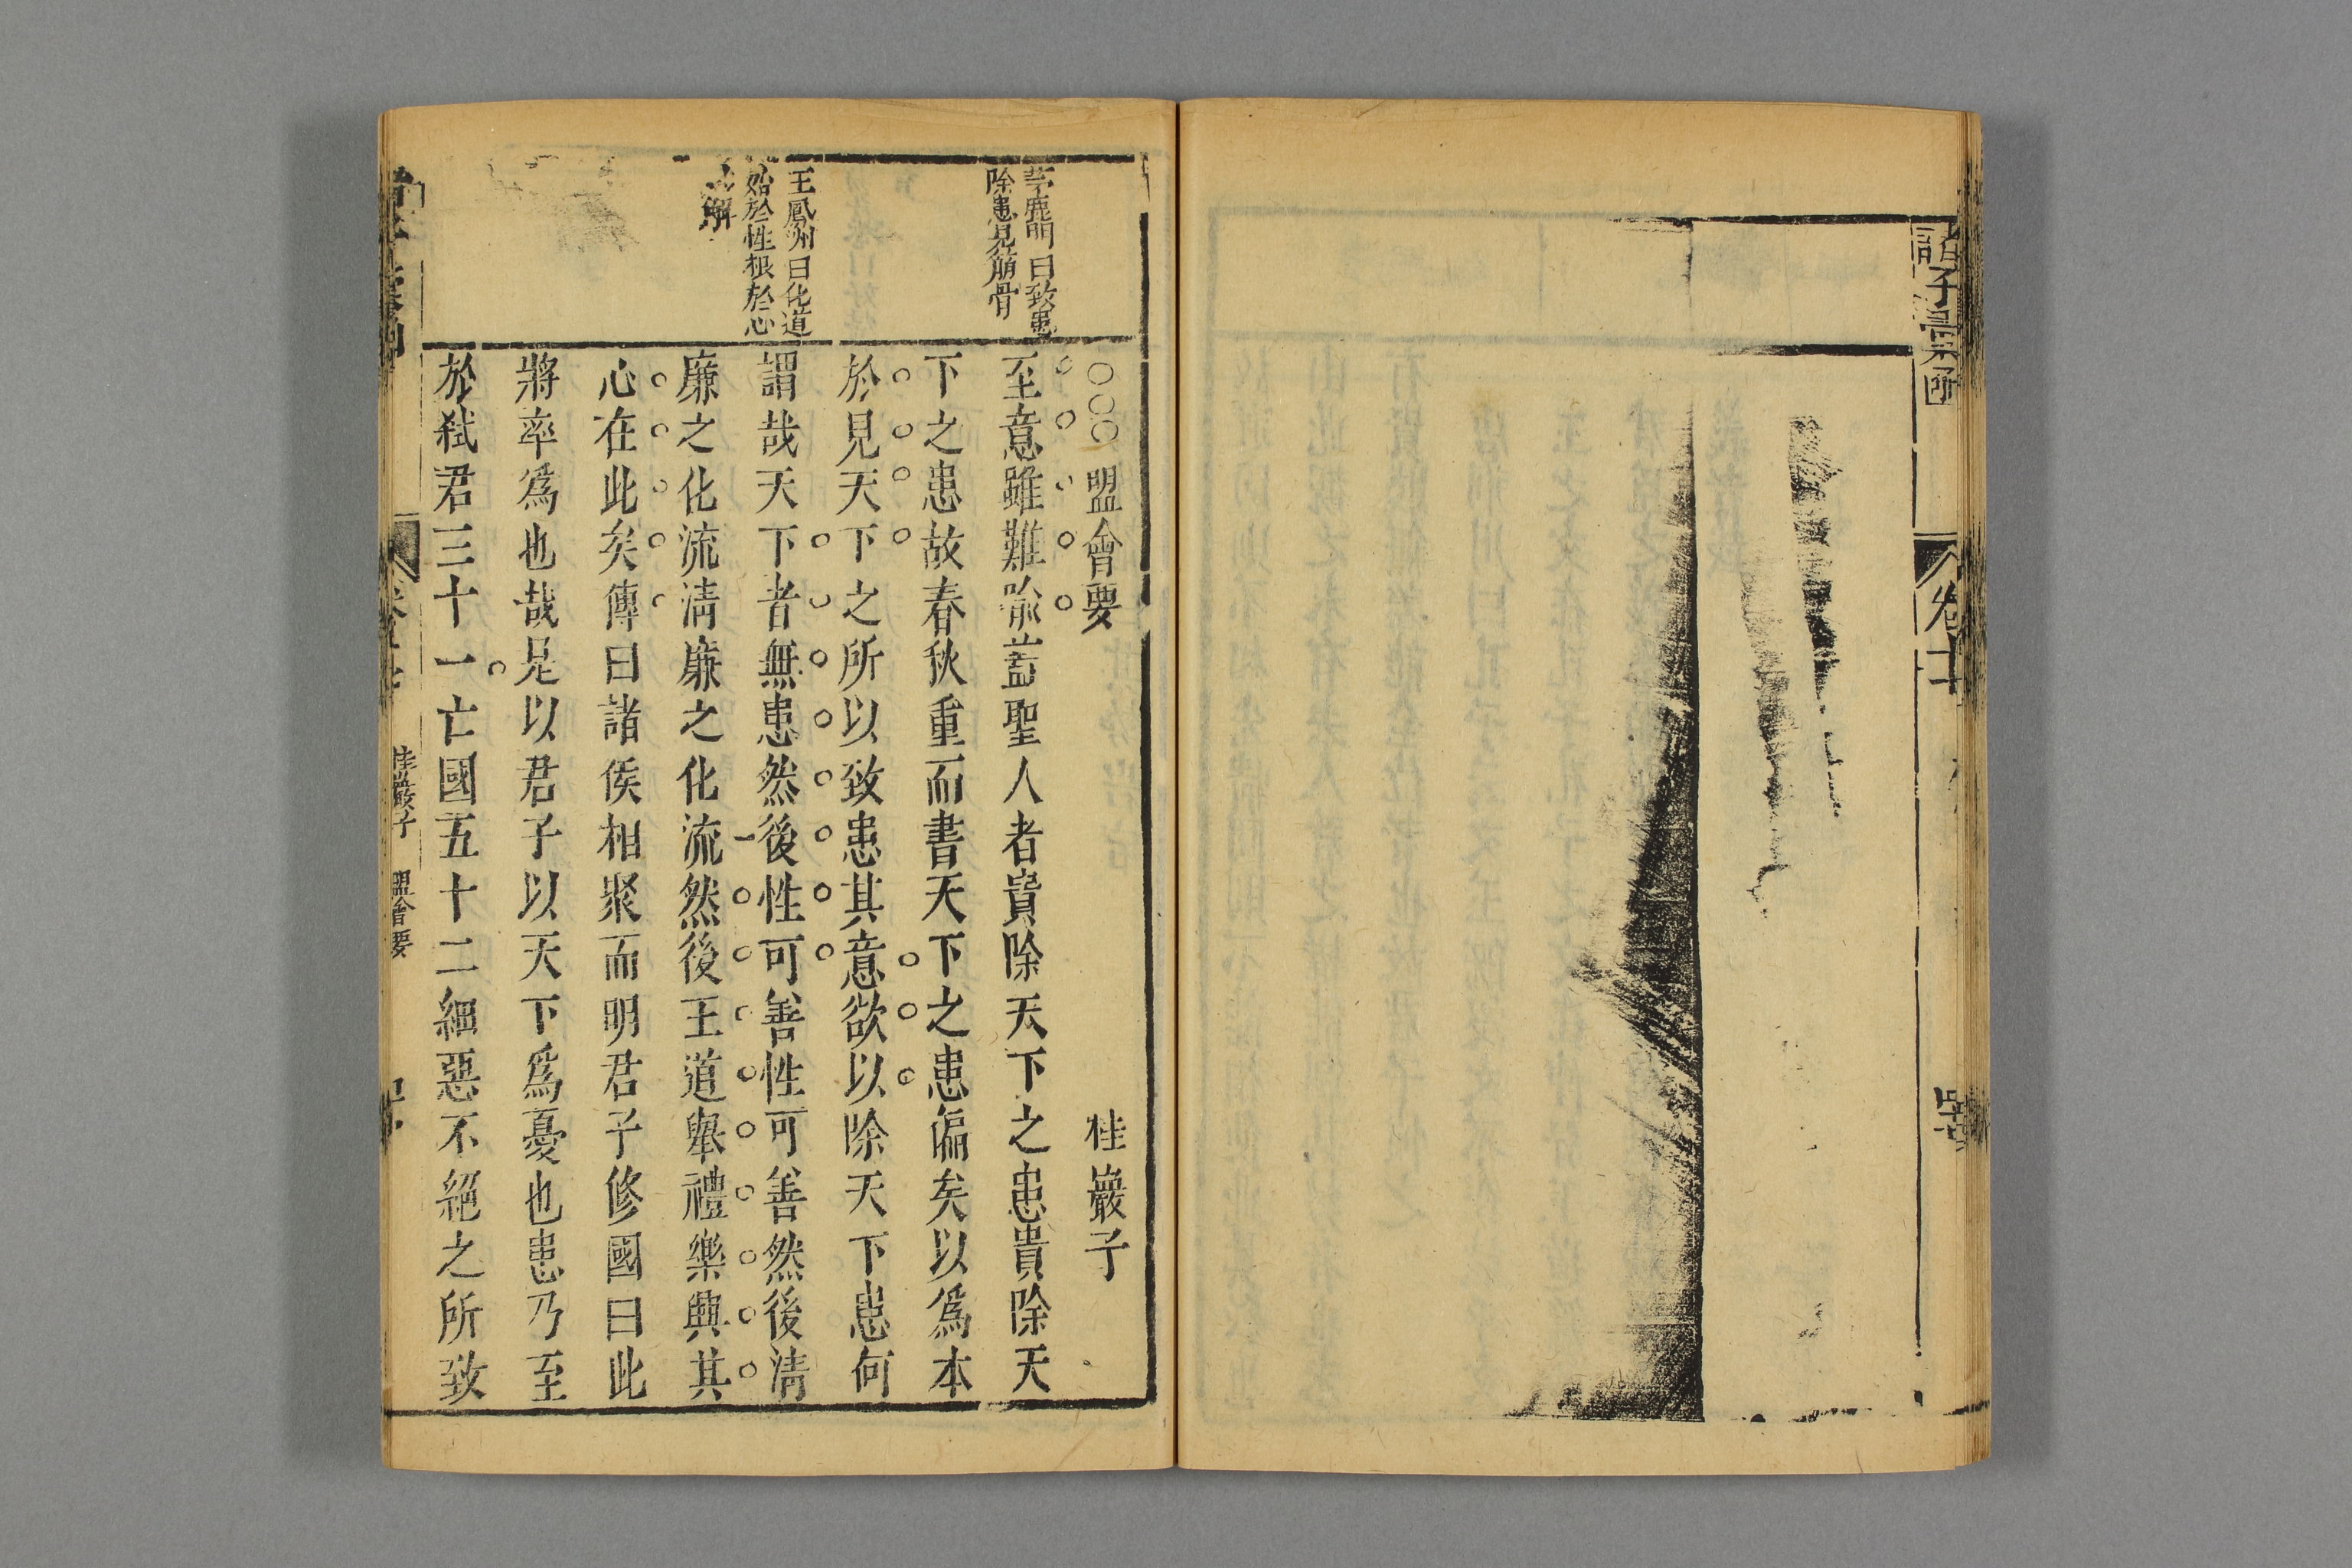 諸子彙函
卷二十
○○○盟會要
桂巖子
至意雖難喻蓋聖人者貴除天下之患貴除天
下之患故春秋重而書天下之患徧矣以爲本
於見天下之所以致患其意欲以除天下患何
謂哉天下者無患然後性可善性可善然後清
廉之化流清廉之化流然後王道舉禮樂興其
心在此矣傳曰諸侯相聚而明君子修國曰此
將率爲也哉是以君子以天下爲憂也患乃至
於弑君三十一亡國五十二細惡不絕之所致
茅鹿門曰致患
除患見崩骨
王鳳洲曰化道
始於性根於心
解
桂巖子
盟會要